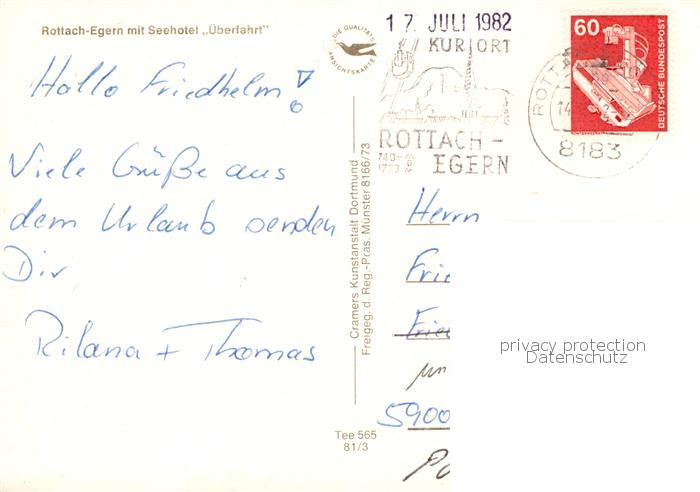 Rottach-Egern mit Seehotel „Überfahrt"
DIE QUALITÄTS
ANSICHTSKARTE
17. JULI 1982
KURORT
ROTTACH-
EGERN
60
DEUTSCHE BUNDESPOST
ROTT
14.
8183
Hallo Friedhelm!
Viele Grüße aus
dem Urlaub senden
Dir
Rilana + Thomas
Cramers Kunstanstalt Dortmund
Freigeg. d. Reg.-Präs. Münster 8166/73
Tee 565
81/3
Herrn
Frie
5900
privacy protection
Datenschutz